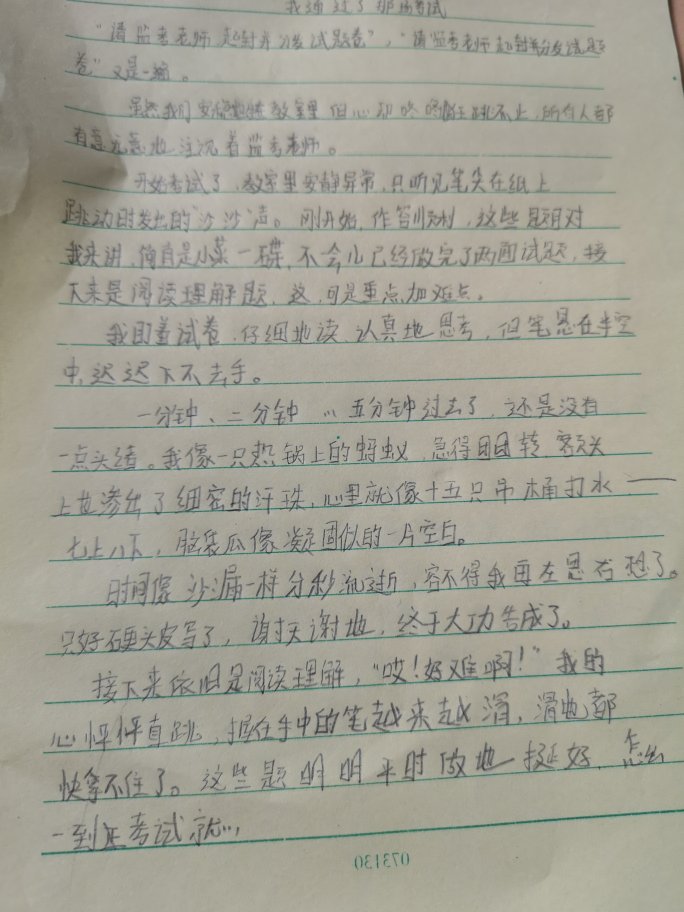 我通过了那场考试
"请监考老师起封并分发试题卷","请监考老师起封并分发试题
卷"又是一遍。
虽然我们安稳地坐教室里 但心却咚咚 跳不止,所有人都
有意无意地注视着监考老师。
开始考试了,教室里安静异常,只听见笔尖在纸上
跳动时发出的"沙沙"声。刚开始,作答顺利,这些题目对
我来讲,简直是小菜一碟,不会儿已经做完了两面试题,接
下来是阅读理解题,这,可是重点加难点。
我盯着试卷,仔细地读,认真地思考,但笔悬在半空
中,迟迟下不去手。
一分钟、二分钟…五分钟过去了,还是没有
一点头绪。我像一只热锅上的蚂蚁,急得团团转,额头
上也渗出了细密的汗珠,心里就像十五只吊桶打水——
七上八下,脑袋瓜像凝固似的一片空白。
时间像沙漏一样分秒流逝,容不得我再左思右想了。
只好硬头皮写了,谢天谢地,终于大功告成了。
接下来依旧是阅读理解,"哎!好难啊!"我的
心怦怦直跳,握在手中的笔越来越滑,滑地都
快拿不住了。这些题明明平时做地挺好,怎么
一到正考试就…,
073130